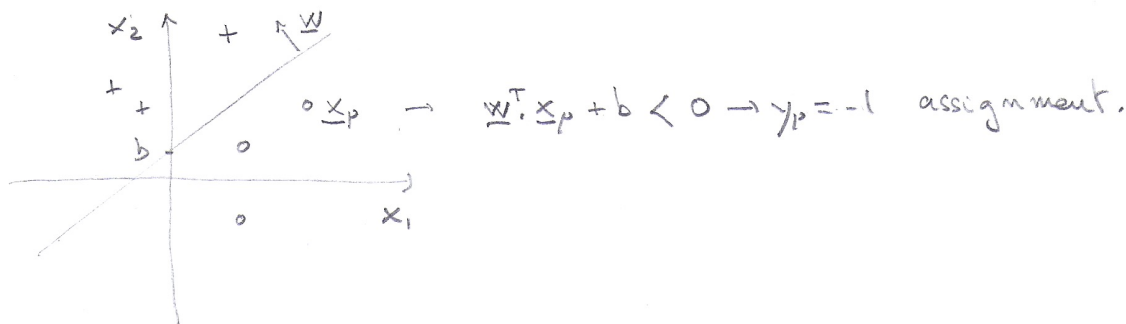 x₂ + w
+ + o x_p → w^T. x_p + b < 0 → y_p = -1 assignment.
b o
o x₁